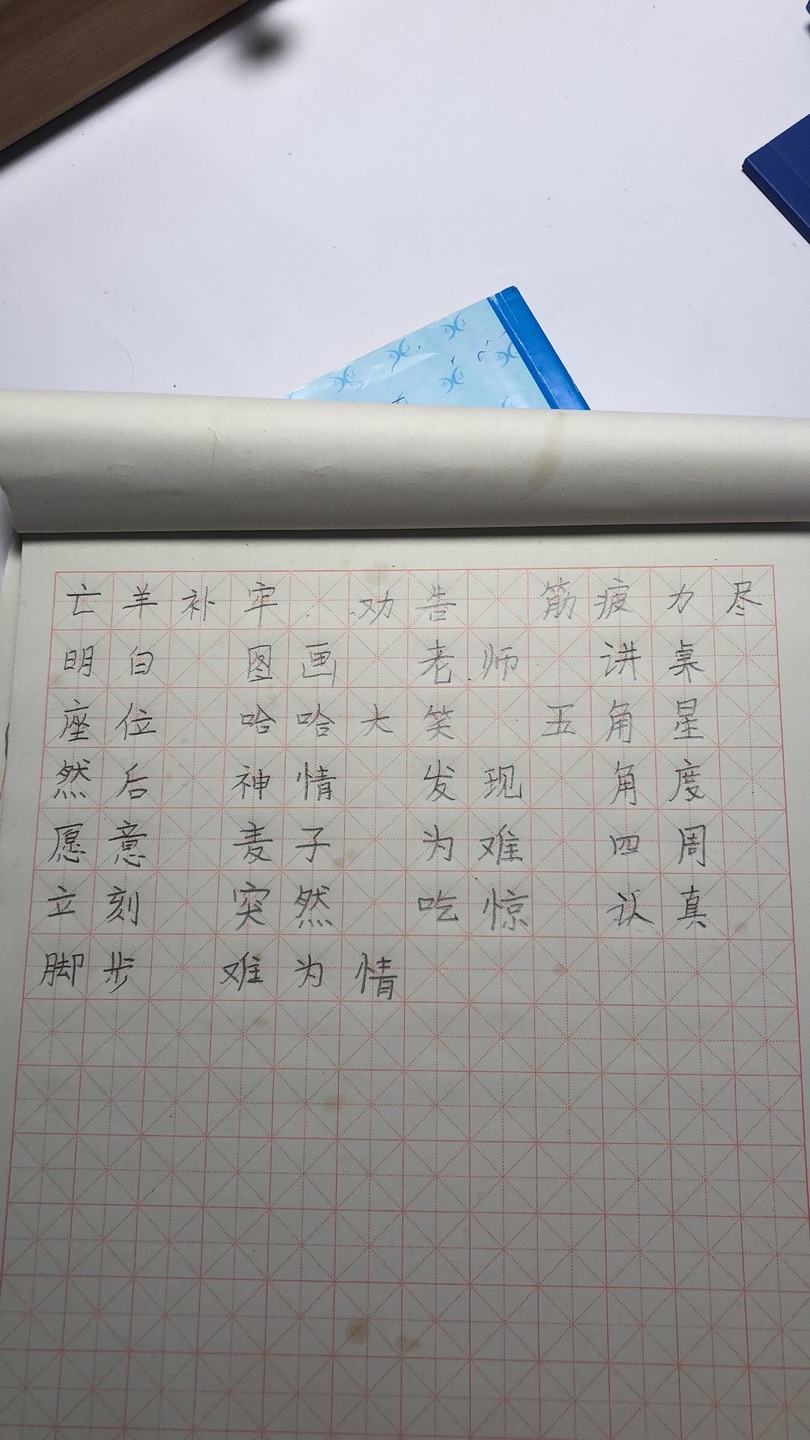 亡羊补牢 劝告 筋疲力尽
明白 图画 老师 讲桌
座位 哈哈大笑 五角星
然后 神情 发现 角度
愿意 麦子 为难 四周
立刻 突然 吃惊 认真
脚步 难为情